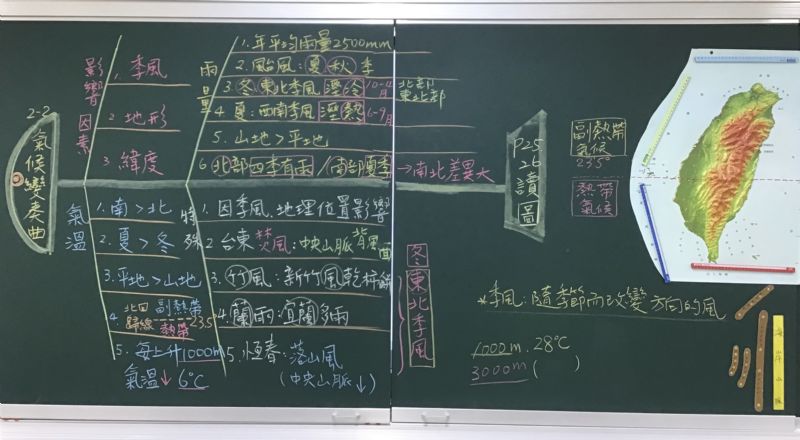 2-2 氣候變奏曲
影響因素
1. 季風
2. 地形
3. 緯度
雨量
1. 年平均雨量2500mm
2. 颱風:夏秋季
3. 冬:東北季風 溼冷 10-4月 北部 東北部
4. 夏:西南季風 溼熱 5-9月
5. 山地>平地
6. 北部四季有雨/南部夏季→南北差異大
氣溫
1. 南>北
2. 夏>冬
3. 平地>山地
4. 北回歸線 副熱帶 熱帶 23.5°
5. 每上升1000m
氣溫↓6℃
特殊
1. 因季風、地理位置影響
2. 台東焚風:中央山脈背風面
3. 竹風:新竹風乾
4. 蘭雨:宜蘭多雨
5. 恆春:落山風
(中央山脈↓)
冬 東北季風
P25
26
讀圖
副熱帶氣候
23.5°
熱帶氣候
*季風:隨季節而改變方向的風
1000m.28℃
3000m( )
海岸山脈